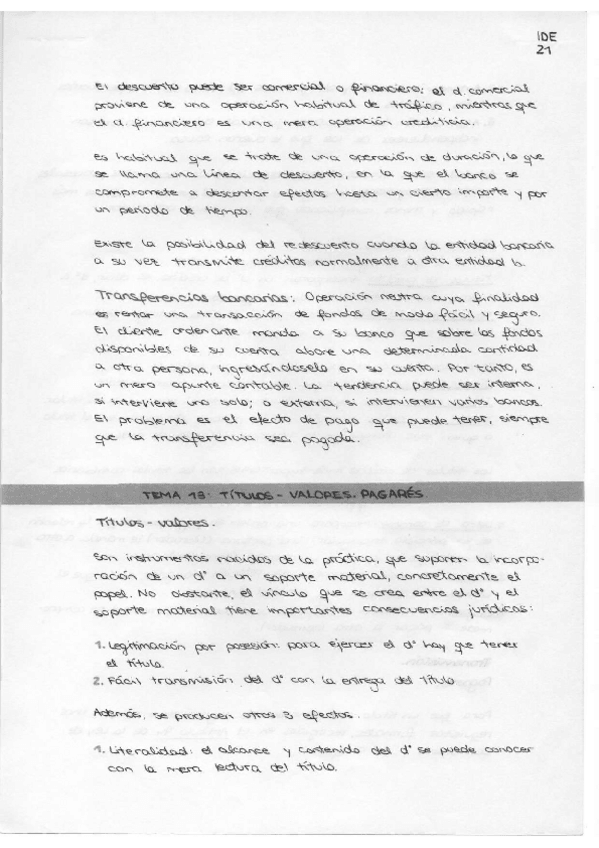 IDE
21
El descuento puede ser comercial o financiero: el d. comercial
proviene de una operación habitual de tráfico, mientras que
el d. financiero es una mera operación crediticia.
Es habitual que se trate de una operación de duración, lo que
se llama una línea de descuento, en la que el banco se
compromete a descontar efectos hasta un cierto importe y por
un periodo de tiempo.
Existe la posibilidad del redescuento cuando la entidad bancaria
a su vez transmite créditos normalmente a otra entidad b.
Transferencias bancarias: Operación neutra cuya finalidad
es rentar una transacción de fondos de modo fácil y seguro.
El cliente ordenante manda a su banco que sobre los fondos
disponibles de su cuenta abone una determinada cantidad
a otra persona, ingresándoselo en su cuenta. Por tanto, es
un mero apunte contable. La tendencia puede ser interna,
si interviene uno solo; o externa, si intervienen varios bancos.
El problema es el efecto de pago que puede tener, siempre
que la transferencia sea pagada.
TEMA 13: TÍTULOS - VALORES. PAGARÉS
Títulos - valores.
Son instrumentos nacidos de la práctica, que suponen la incorpo-
ración de un dº a un soporte material, concretamente el
papel. No obstante, el vínculo que se crea entre el dº y el
soporte material tiene importantes consecuencias jurídicas:
1. Legitimación por posesión: para ejercer el dº hay que tener
el título.
2. Fácil transmisión del dº con la entrega del título
Además, se producen otros 3 efectos.
1. Literalidad: el alcance y contenido del dº se puede conocer
con la mera lectura del título.